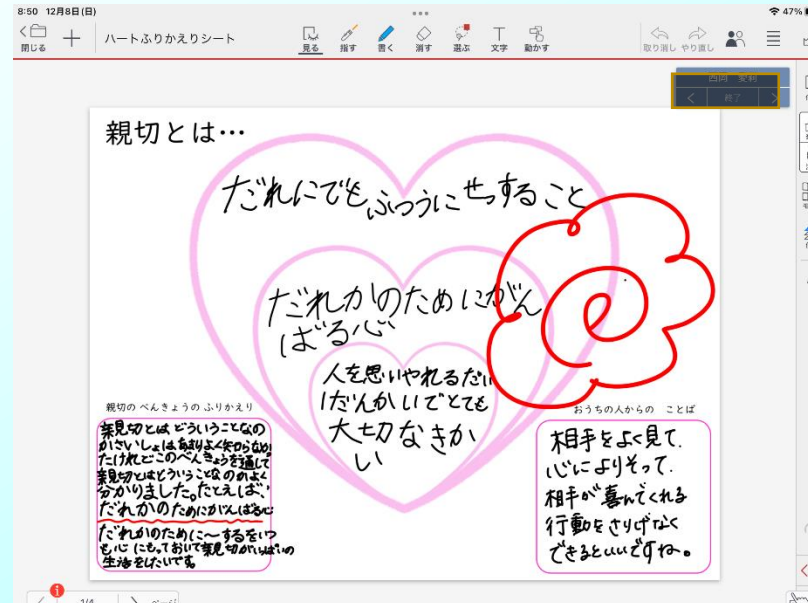 8:50 12月8日(日)
47%
閉じる
ハートふりかえりシート
見る 指す 書く 消す 選ぶ 文字 動かす
取り消し やり直し
終了
親切とは…
だれにでもふつうにせっすること
だれかのためにがん
ばる心
人を思いやれるだい
1だんかいでとても
大切なきか
い
親切の べんきょうの ふりかえり
親切とはどういうことなの
かさいしょはあまりよく知らなか
たけれどこのべんきょうを通して
親切とはどういうことなのかよく
分かりました。たとえば、
だれかのためにがんばる心
だれかのために〜するをいつ
も心にもっておいて親切がいっぱいの
生活をしたいです
おうちの人からの ことば
相手をよく見て、
心によりそって、
相手が喜んでくれる
行動をさりげなく
できるといいですね。
1/4 ページ